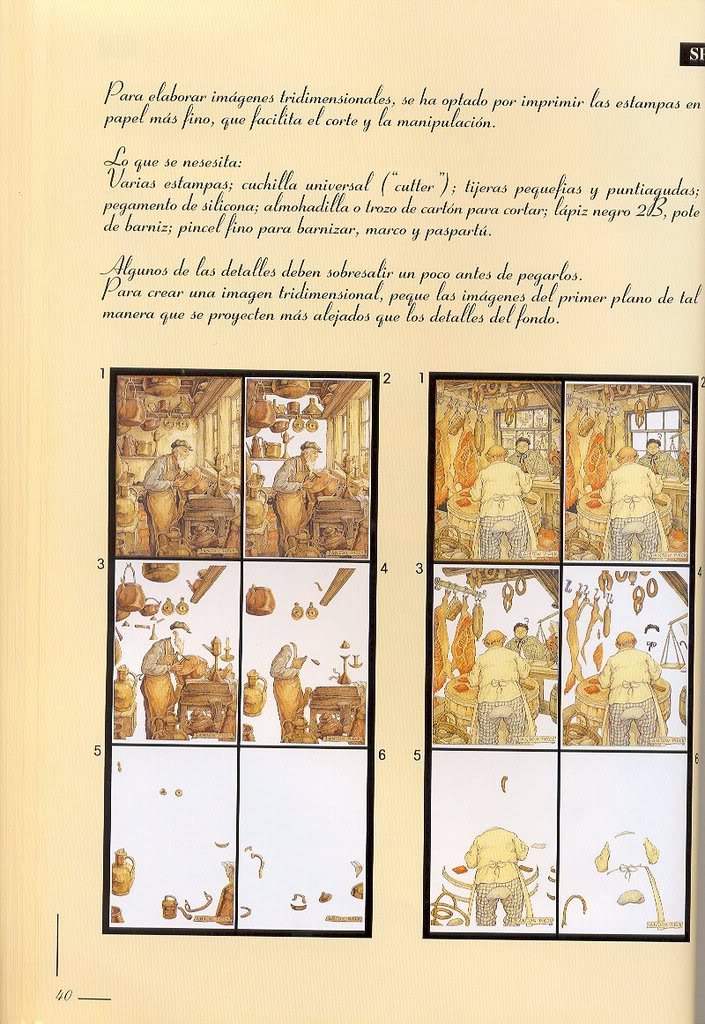 SE
Para elaborar imágenes tridimensionales, se ha optado por imprimir las estampas en
papel más fino, que facilita el corte y la manipulación.
Lo que se nesesita:
Varias estampas; cuchilla universal ("cutter"); tijeras pequeñas y puntiagudas;
pegamento de silicona; almohadilla o trozo de cartón para cortar; lápiz negro 2B, pote
de barniz; pincel fino para barnizar, marco y paspartú.
Algunos de las detalles deben sobresalir un poco antes de pegarlos.
Para crear una imagen tridimensional, peque las imágenes del primer plano de tal
manera que se proyecten más alejados que los detalles del fondo.
1 2 1 2
3 4 3 4
5 6 5 6
ANTON PIECK
40